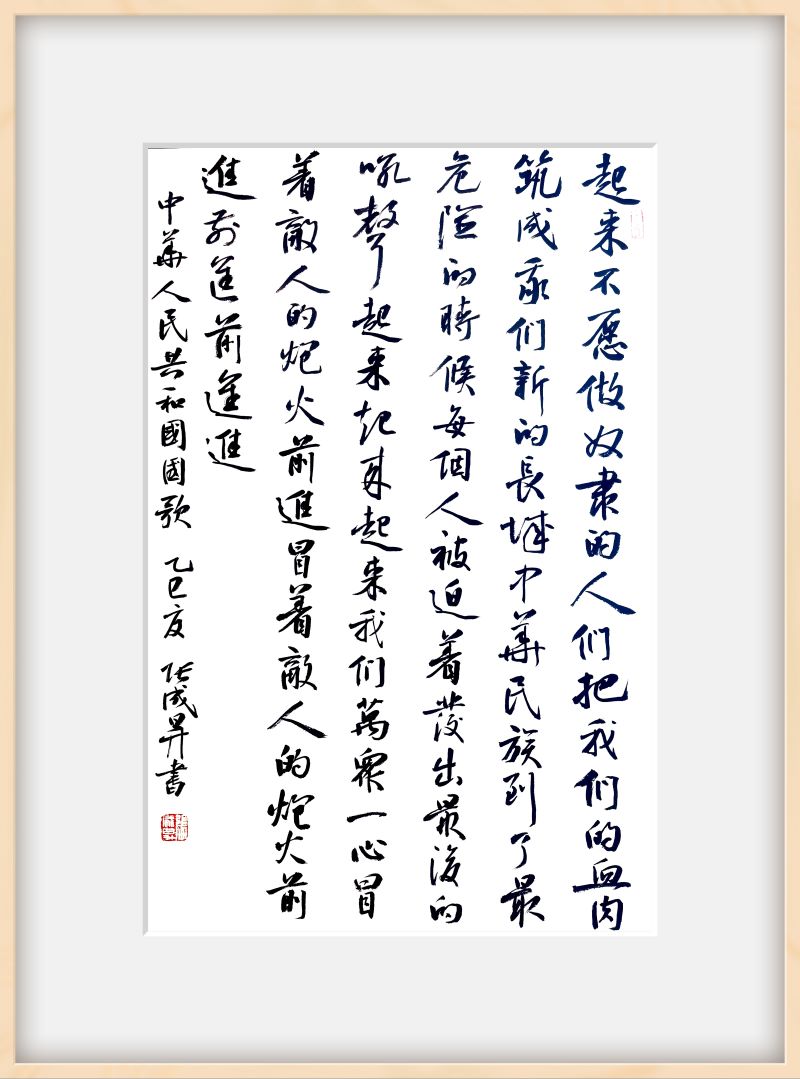 起来不愿做奴隶的人们把我们的血肉
筑成我们新的長城中華民族到了最
危险的時候每個人被迫着發出最後的
吼聲起来起来起来我们萬衆一心冒
着敵人的炮火前進冒着敵人的炮火前
進前進前進進
中華人民共和國國歌 乙巳夏 张成昇書